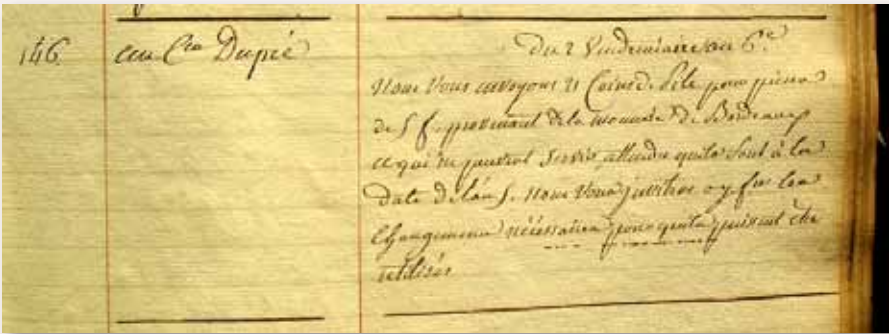 146. au C.en Dupré
Du 2 Vendemiaire an 6.e
Nous vous envoyons 21 Coins de pile pour pieces
de 5 f. provenant de la monnaie de Bordeaux
et qui ne peuvent servir attendu qu'ils sont à la
date de l'an 5. Nous vous invitons à y fre les
changemens nécessaires pour qu'ils puissent être
utilisés